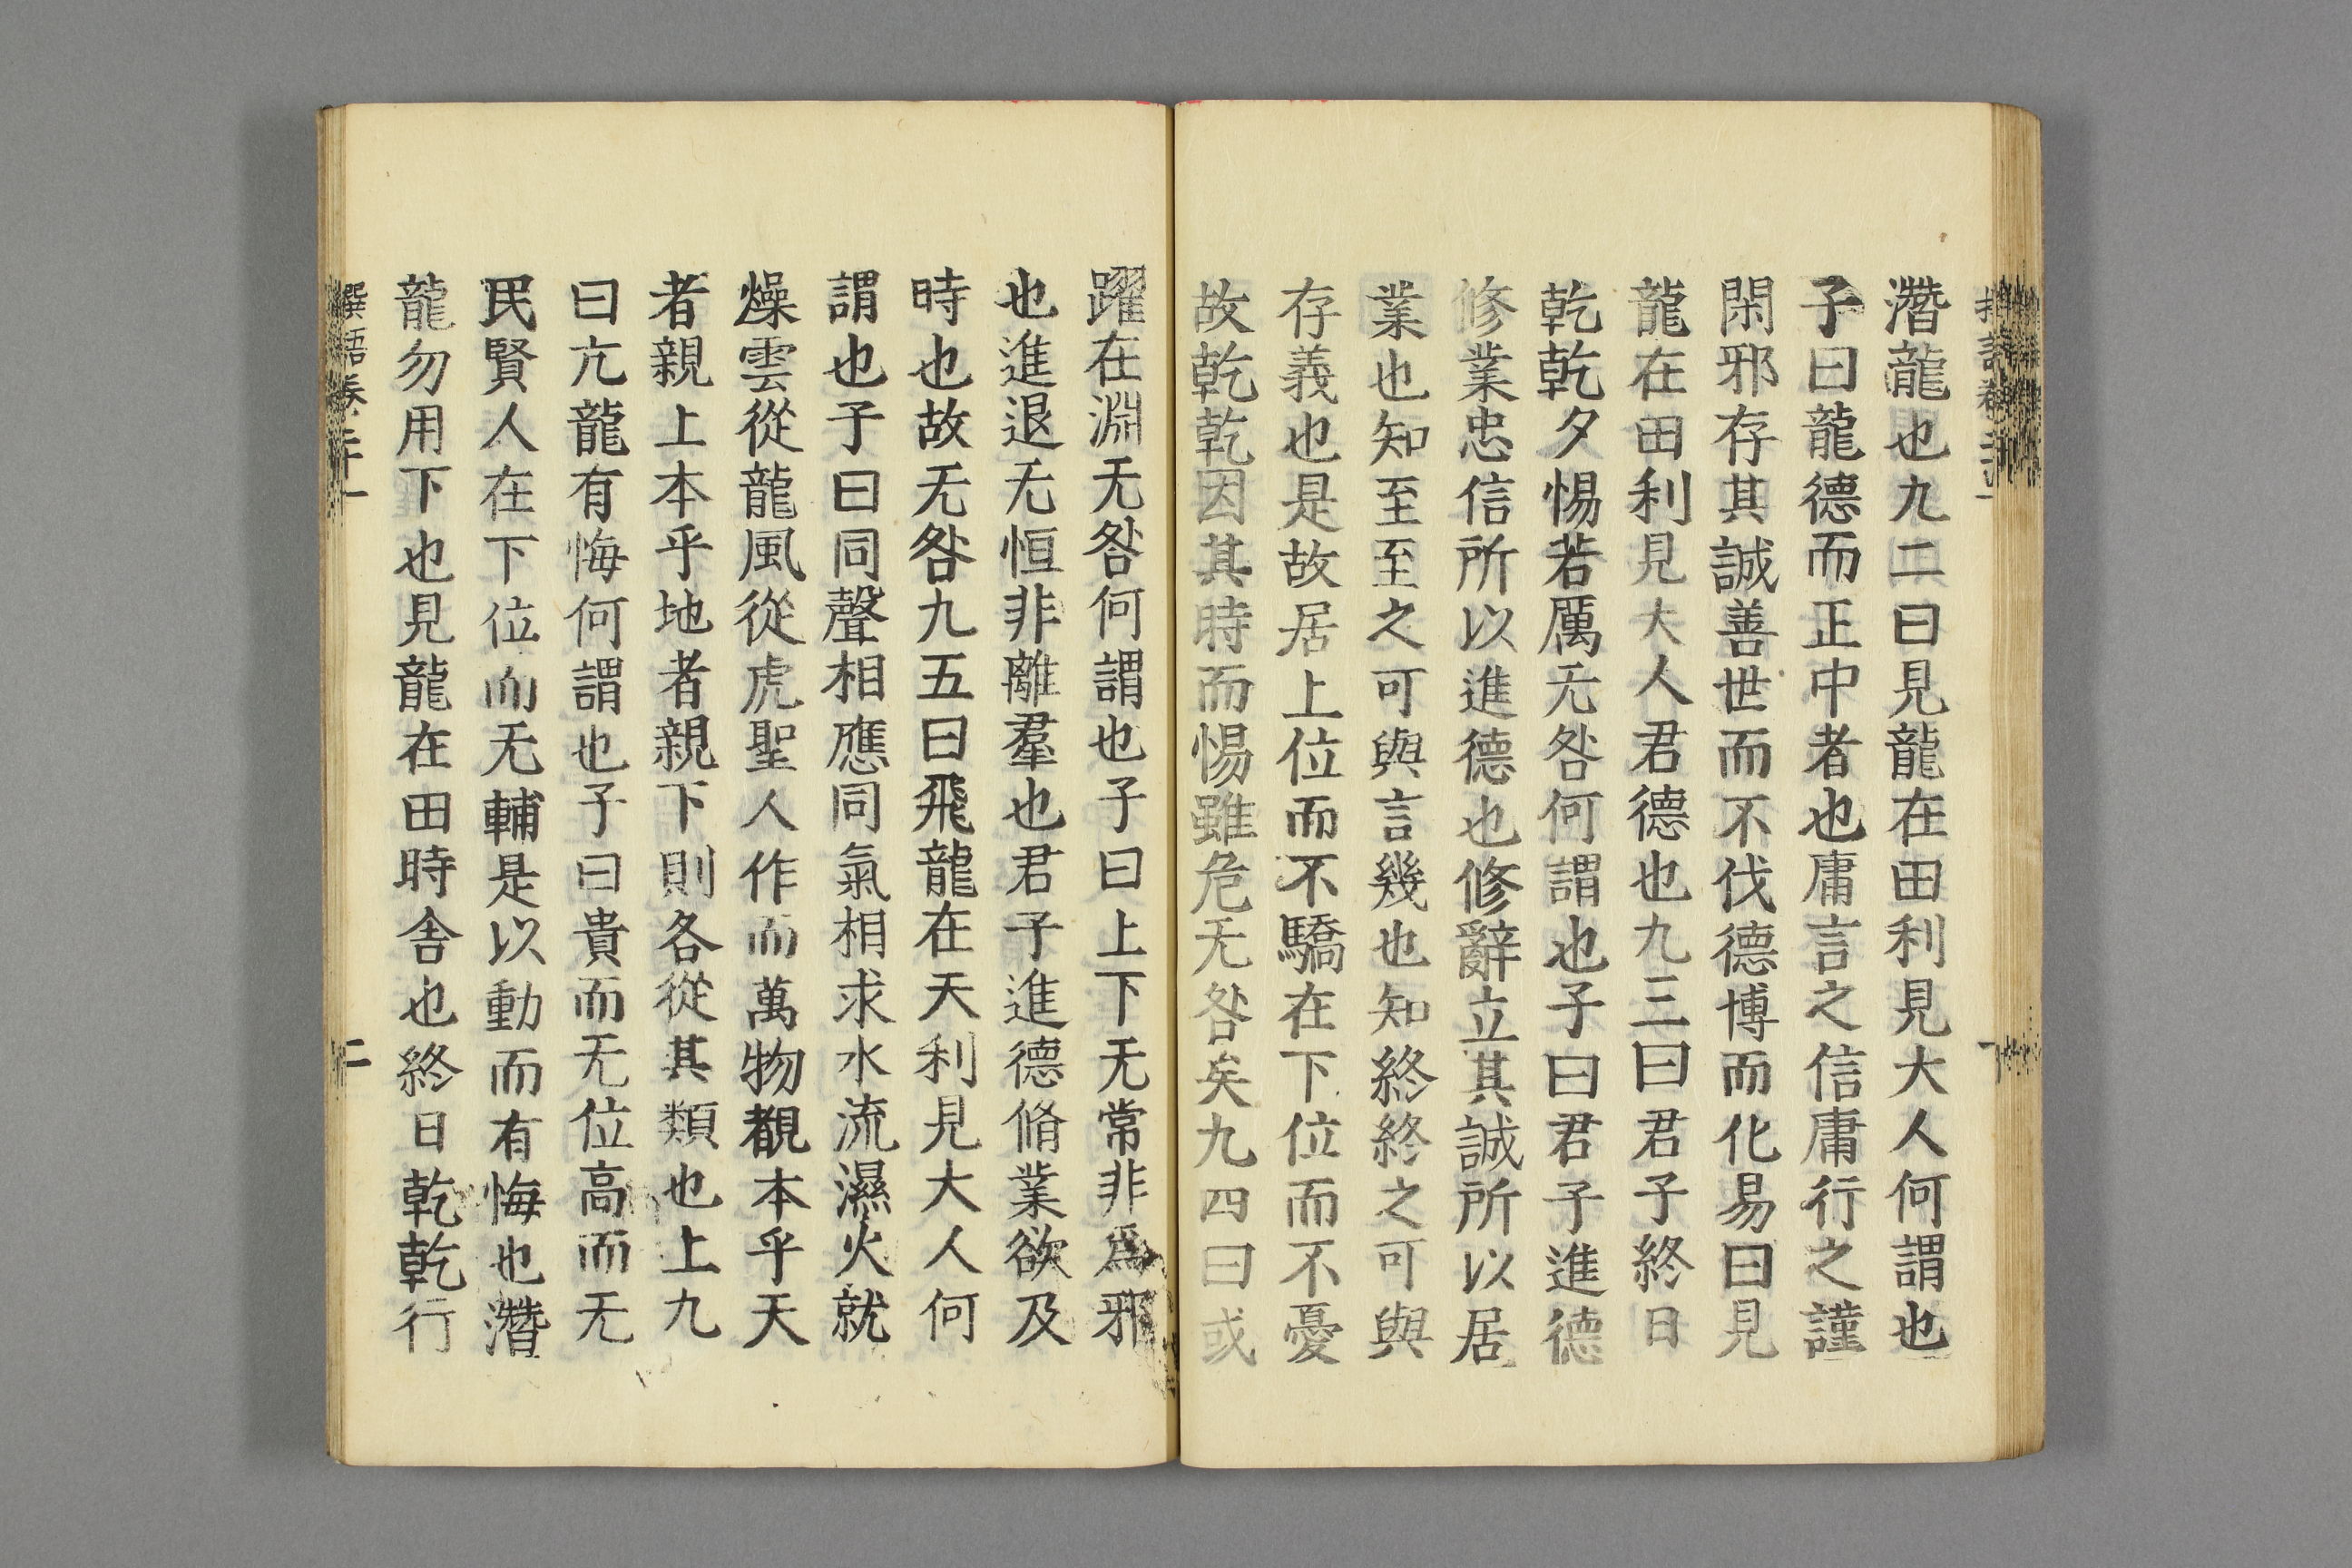 潛龍也九二曰見龍在田利見大人何謂也
子曰龍德而正中者也庸言之信庸行之謹
閑邪存其誠善世而不伐德博而化易曰見
龍在田利見大人君德也九三曰君子終日
乾乾夕惕若厲无咎何謂也子曰君子進德
修業忠信所以進德也修辭立其誠所以居
業也知至至之可與言幾也知終終之可與
存義也是故居上位而不驕在下位而不憂
故乾乾因其時而惕雖危无咎矣九四曰或
躍在淵无咎何謂也子曰上下无常非爲邪
也進退无恒非離羣也君子進德脩業欲及
時也故无咎九五曰飛龍在天利見大人何
謂也子曰同聲相應同氣相求水流濕火就
燥雲從龍風從虎聖人作而萬物覩本乎天
者親上本乎地者親下則各從其類也上九
曰亢龍有悔何謂也子曰貴而无位高而无
民賢人在下位而无輔是以動而有悔也潛
龍勿用下也見龍在田時舍也終日乾乾行
撰語卷二十一
二